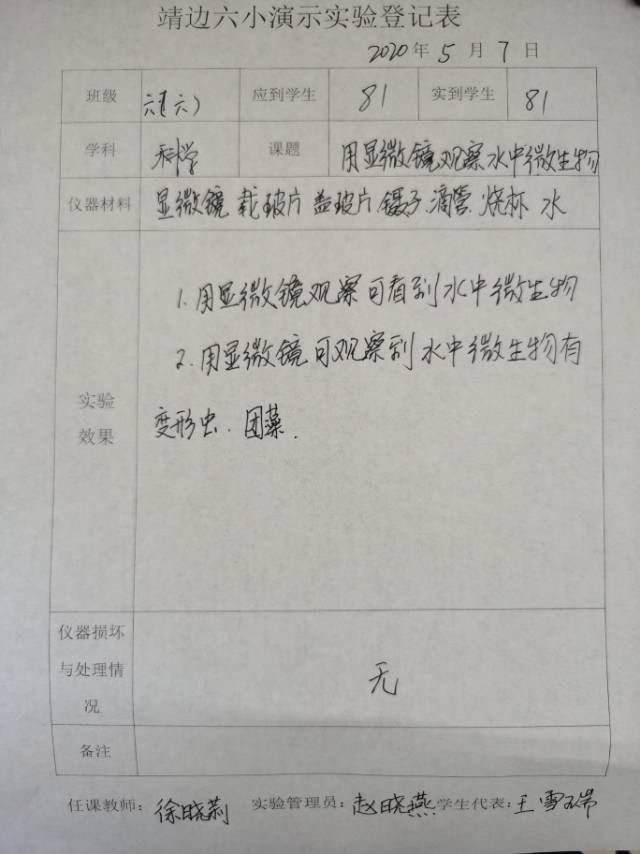 靖边六小演示实验登记表
2020年5月7日
班级 六(六) 应到学生 81 实到学生 81
学科 科学 课题 用显微镜观察水中微生物
仪器材料 显微镜 载玻片 盖玻片 镊子 滴管 烧杯 水
1. 用显微镜观察可看到水中微生物
2. 用显微镜可观察到水中微生物有
实验
效果
变形虫. 团藻.
仪器损坏
与处理情
况
无
备注
任课教师: 徐晓莉 实验管理员: 赵晓燕 学生代表: 王雪